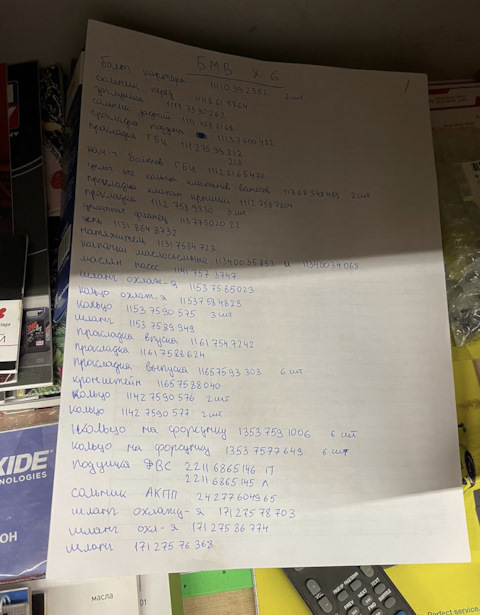 БМВ Х 6
1
болт картера 11110392552 2 шт
сальник перед 11118618864
заглушка 11117530262
сальник задний 11117587168
прокладка поддона 11137600482
прокладка ГБЦ 11127599212
213
ком-т болтов ГБЦ 11122165470
клапанов 11367548459 2 шт
прокладка клапан крышки 11127587804
прокладка 11127589830 3 шт
фланец 11377502022
цепь 11318648732
натяжитель 11317584723
колпачки маслосъемные 11340035853 и 11340034068
маслян насос 11417573747
шланг охлажд-я 11537585023
кольцо охлаж-я 11537584823
кольцо 11537590575 3 шт
шланг 11537589949
прокладка впуска 11617547242
прокладка 11617588624
прокладка выпуска 11657593303 6 шт
кронштейн 11657588040
кольцо 11427590576 2 шт
кольцо 11427590577 2 шт
кольцо на форсунку 13537591006 6 шт
кольцо на форсунку 13537577649 6 шт
подушка ДВС 22116865146 П
22116865145 Л
сальник АКПП 24277604965
шланг охлажд-я 17127578703
шланг охл-я 17127586774
шланг 17127576368
XIDE
NOLOGIES
масла
01
Perfect service.
TEXT
NEXT